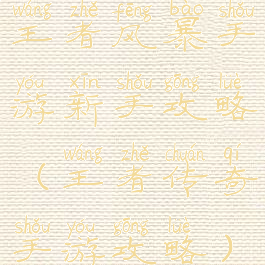 wáng zhě fēng bào shǒu
王者风暴手
yóu xīn shǒu gōng lüè
游新手攻略
wáng zhě chuán qí
（王者传奇
shǒu yóu gōng lüè
手游攻略）